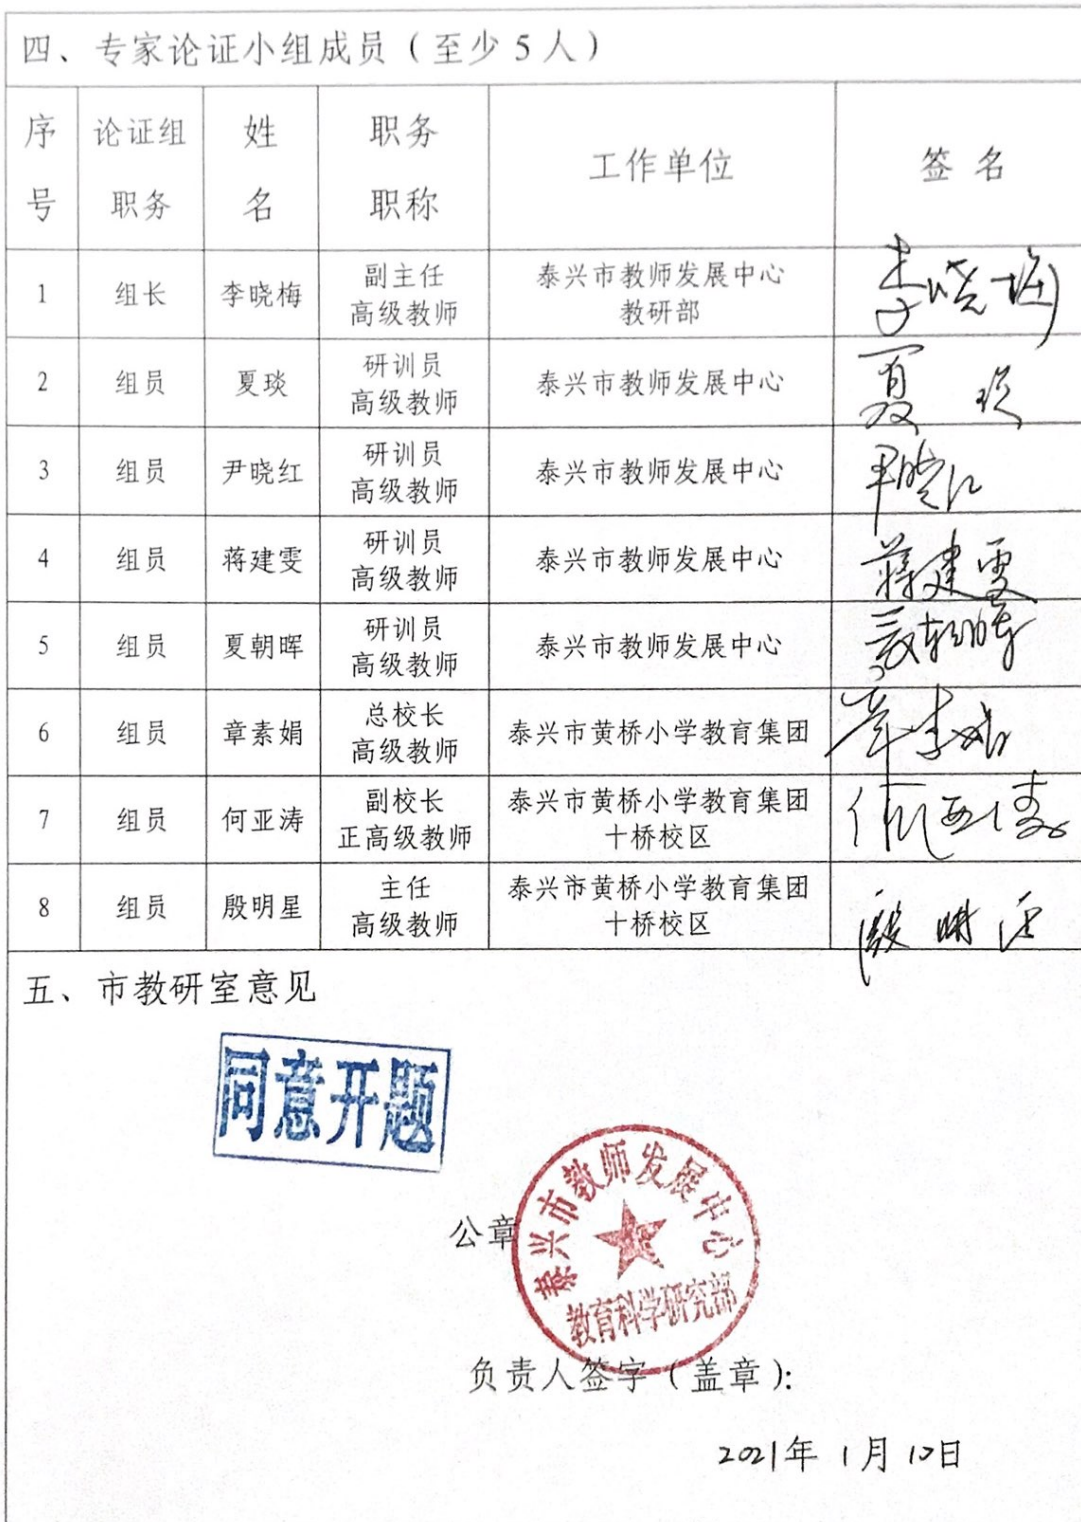 四、专家论证小组成员（至少5人）
序号 论证组职务 姓名 职务职称 工作单位 签名
1 组长 李晓梅 副主任 高级教师 泰兴市教师发展中心 教研部 李晓梅
2 组员 夏琰 研训员 高级教师 泰兴市教师发展中心 夏琰
3 组员 尹晓红 研训员 高级教师 泰兴市教师发展中心 尹晓红
4 组员 蒋建雯 研训员 高级教师 泰兴市教师发展中心 蒋建雯
5 组员 夏朝晖 研训员 高级教师 泰兴市教师发展中心 夏朝晖
6 组员 章素娟 总校长 高级教师 泰兴市黄桥小学教育集团 章素娟
7 组员 何亚涛 副校长 正高级教师 泰兴市黄桥小学教育集团 十桥校区 何亚涛
8 组员 殷明星 主任 高级教师 泰兴市黄桥小学教育集团 十桥校区 殷明星
五、市教研室意见
同意开题
公章
泰兴市教师发展中心
教育科学研究部
负责人签字（盖章）：
2021年1月10日